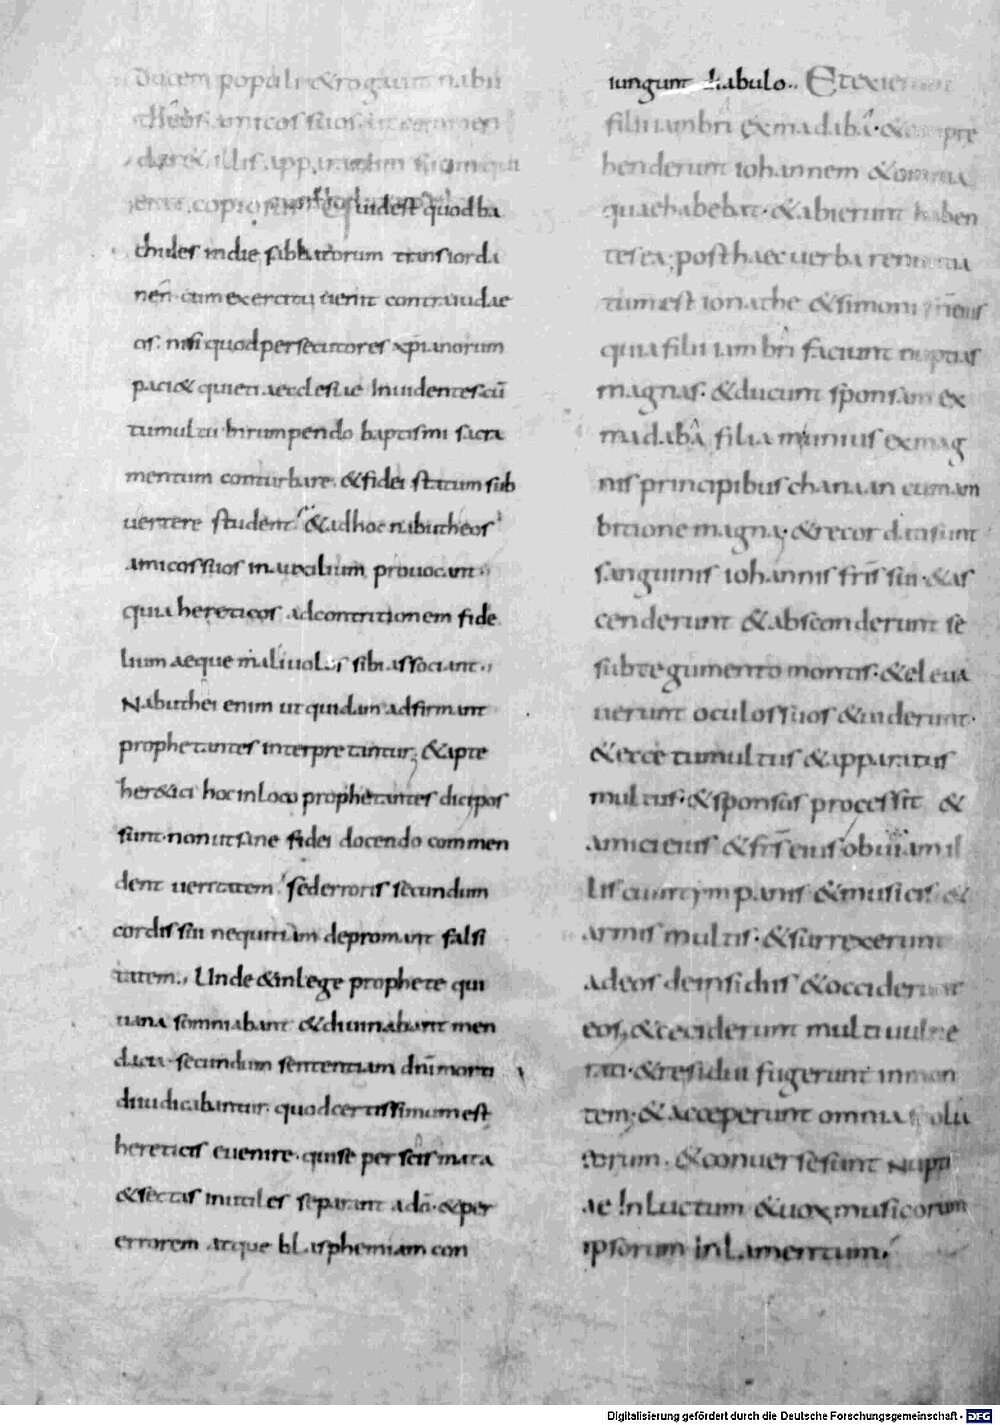 ducem populi & rogauit nabu
theos amicos suos ut commen
dar& illis apparatum suum qui
erat copiosus Quid est quod ba
chides in die sabbatorum trans iorda
nen̄ cum exercitu uenit contra iudae
os. nisi quod persecutores xp̄ianorum
paci & quieti aecclesiae Inuidentes cū
tumultu Inrumpendo baptismi sacra
mentum conturbare. & fidei statum sub
uertere student. & ad hoc nabutheos
amicos suos in auxilium prouocant.,
quia hereticos ad contritionem fide
lium aeque maliuolos sibi associant.,
Nabuthei enim ut quidam adfirmant
prophetantes interpretantur; & apte
her&ici hoc in loco prophetantes dici pos
sunt. non ut sane fidei docendo commen
dent ueritatem. sed erroris secundum
cordis sui nequitiam depromant falsi
tatem., Unde & in lege prophete qui
uana somniabant & diuinabant men
dacia. secundum sententiam dn̄i morti
diiudicabantur. quod certissimum est
hereticis euenire. qui se per scismata
& sectas inutiles separant a do. & per
errorem atque blasphemiam con
iungunt diabulo., Et exierunt
filii iambri ex madaba. & conpre
henderunt iohannem & omnia
quae habebat. & abierunt haben
tes ea; post haec uerba renuntia
tum est ionathe & simoni fr̄i eius
quia filii iambri faciunt nuptias
magnas. & ducunt sponsam ex
madaba filia munius ex mag
nis principibus chanaan cum am
bitione magna; & recordati sunt
sanguinis iohannis fr̄is sui. & as
cenderunt & absconderunt se
sub tegumento montis. & eleua
uerunt oculos suos & uiderunt.
& ecce tumultus & apparatus
multus. & sponsus processit &
amici eius & fr̄s eius obuiam il
lis cum tympanis & musicis &
armis multis. & surrexerunt
ad eos de insidiis & occiderunt
eos, & ceciderunt multi uulne
rati. & residui fugerunt in mon
tem; & acceperunt omnia spolia
eorum. & conuersae sunt Nupti
ae In luctum & uox musicorum
ipsorum in lamentum.
Digitalisierung gefördert durch die Deutsche Forschungsgemeinschaft - DFG